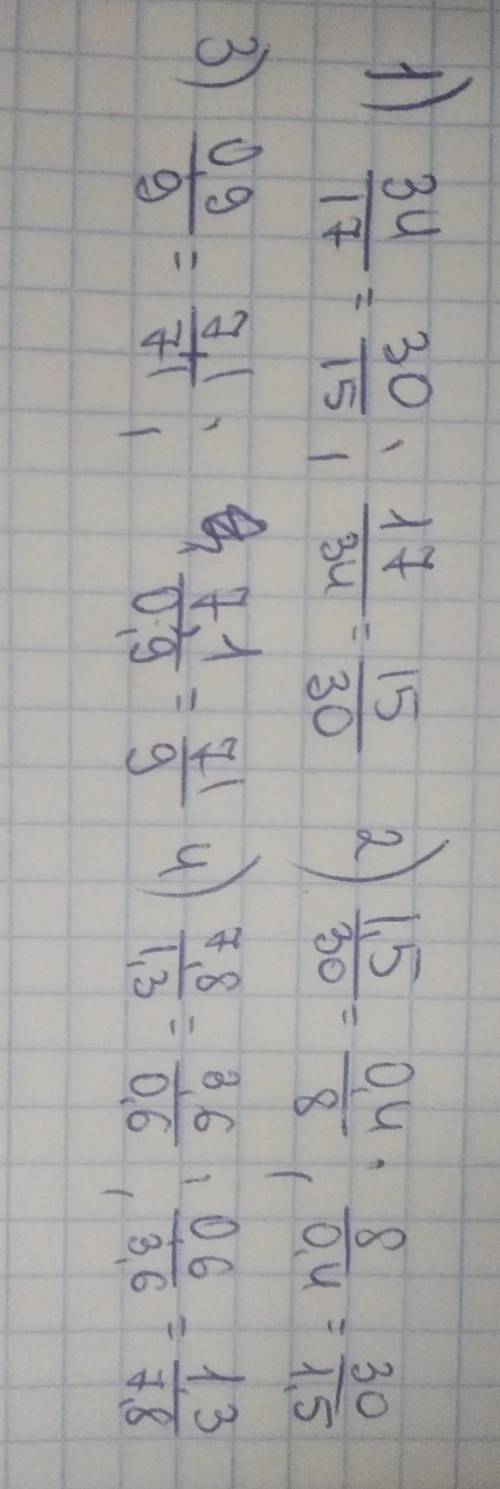 1) 34/17 = 30/15 , 17/34 = 15/30 2) 1,5/30 = 0,4/8 , 8/0,4 = 30/1,5
3) 0,9/9 = 7,1/71 , 7,1/0,9 = 71/9 4) 7,8/1,3 = 3,6/0,6 , 0,6/3,6 = 1,3/7,8